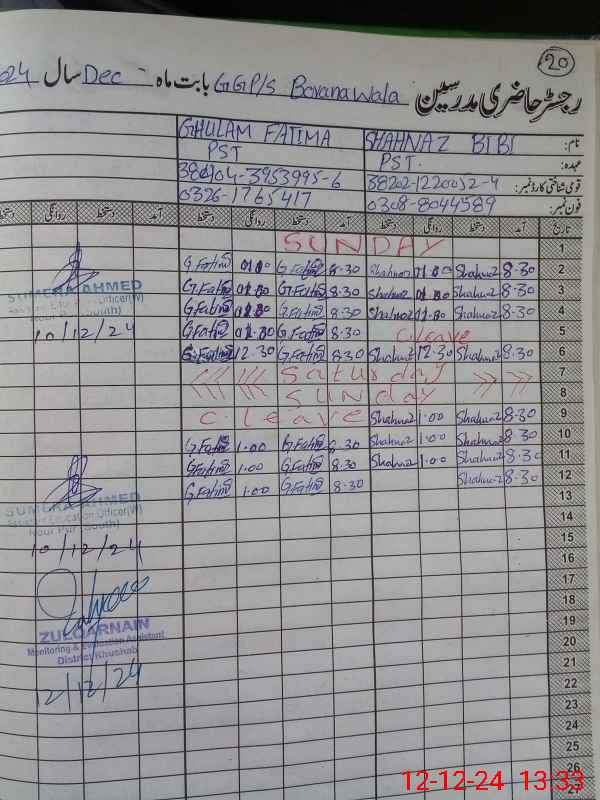 20
رجسٹر حاضری مدرسین GGP/S Boranawala بابت ماہ Dec سال 24
نام: SHAHNAZ BIBI GHULAM FATIMA
عہدہ: PST. PST
قومی شناختی کارڈ نمبر: 38202-1220052-4 38404-3953995-6
فون نمبر: 0308-8044589 0326-1765417
تاریخ آمد دستخط روانگی دستخط آمد دستخط روانگی دستخط آمد دستخط روانگی دستخط
1 SUNDAY
2 8.30 Shahnaz 01.00 Shahnaz 8.30 G Fatima 01.00 G Fatima
3 8.30 Shahnaz Shahnaz 8.30 G Fatima G Fatima
4 8.30 Shahnaz Shahnaz 8.30 G Fatima G Fatima
5 C.leave 8.30 G Fatima G Fatima
6 8.30 Shahnaz 12.30 Shahnaz 8.30 G.Fatima 12.30 G.Fatima
7 Saturday
8 SUNDAY
9 8.30 Shahnaz 1.00 Shahnaz C.leave
10 8.30 Shahnaz 1.00 Shahnaz 8.30 G Fatima 1.00 G Fatima
11 8.30 Shahnaz 1.00 Shahnaz 8.30 G Fatima 1.00 G Fatima
12 8.30 Shahnaz 8.30 G Fatima 1.00 G Fatima
13
14
15
16
17
18
19
20
21
22
23
24
25
26
27
SUMERA AHMED
Education Officer(W)
South)
10/12/24
SUMERA AHMED
Assistant Education Officer(W)
Noor Pur (South)
10/12/24
ZULQARNAIN
Monitoring & Evaluation Assistant
District Khushab
12/12/24
12-12-24 13:33